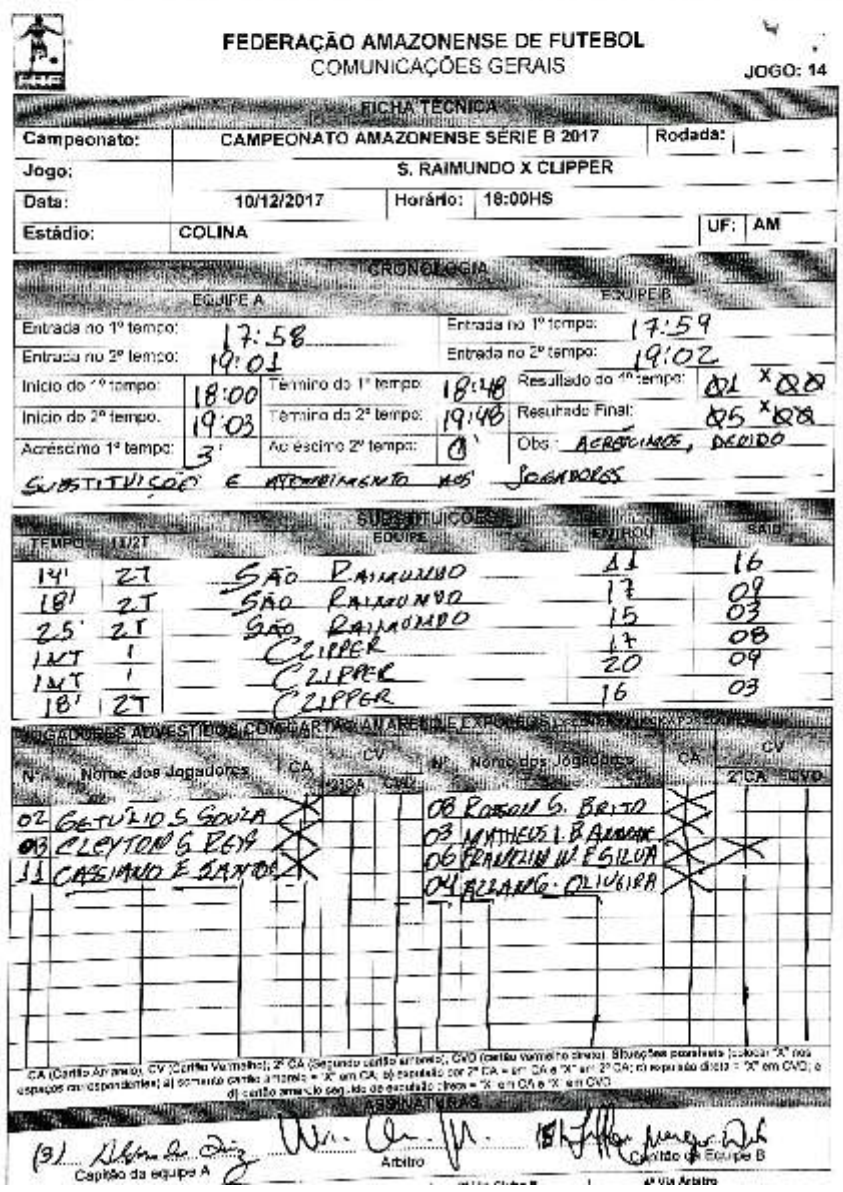 FEDERAÇÃO AMAZONENSE DE FUTEBOL
COMUNICAÇÕES GERAIS
JOGO: 14
FICHA TÉCNICA
Campeonato: CAMPEONATO AMAZONENSE SÉRIE B 2017 Rodada:
Jogo: S. RAIMUNDO X CLIPPER
Data: 10/12/2017 Horário: 18:00HS
Estádio: COLINA UF: AM
CRONOLOGIA
EQUIPE A EQUIPE B
Entrada no 1º tempo: 17:58 Entrada no 1º tempo: 17:59
Entrada no 2º tempo: 19:01 Entrada no 2º tempo: 19:02
Início do 1º tempo: 18:00 Término do 1º tempo: 18:48 Resultado do 1º tempo: 01 X 00
Início do 2º tempo: 19:03 Término do 2º tempo: 19:48 Resultado Final: 05 X 00
Acréscimo 1º tempo: 3' Acréscimo 2º tempo: 0' Obs.: ACRÉSCIMOS, DEVIDO
SUBSTITUIÇÕES E ATENDIMENTO AOS JOGADORES
SUBSTITUIÇÕES
TEMPO 1T/2T EQUIPE ENTROU SAIU
14' 2T SÃO RAIMUNDO 11 16
18' 2T SÃO RAIMUNDO 17 09
25' 2T SÃO RAIMUNDO 15 03
INT ' CLIPPER 17 08
INT ' CLIPPER 20 09
18' 2T CLIPPER 16 03
JOGADORES ADVESTIDOS COM CARTÃO AMARELO E EXPULSOS
Nº Nome dos Jogadores CA CV 2ºCA CVD Nº Nome dos Jogadores CA CV 2ºCA CVD
02 GETÚLIO S SOUZA X 08 ROBSON G. BRITO X
03 CLEYTON S REIS X 03 MATHEUS L. B ANDRADE X
11 CASSIANO E SANTOS X 06 FRANKLIN W. F SILVA X X
04 ALLAN G. OLIVEIRA X
CA (Cartão Amarelo), CV (Cartão Vermelho); 2º CA (Segundo cartão amarelo), CVD (cartão vermelho direto). Situações possíveis (colocar "X" nos
espaços correspondentes) a) somente cartão amarelo = "X" em CA; b) expulsão por 2º CA = em CA e "X" em 2º CA; c) expulsão direta = "X" em CVD; e
d) cartão amarelo seguido de expulsão direta = "X" em CA e "X" em CVD
ASSINATURAS
(3)
Capitão da equipe A Árbitro Capitão da Equipe B
4ª Via Árbitro